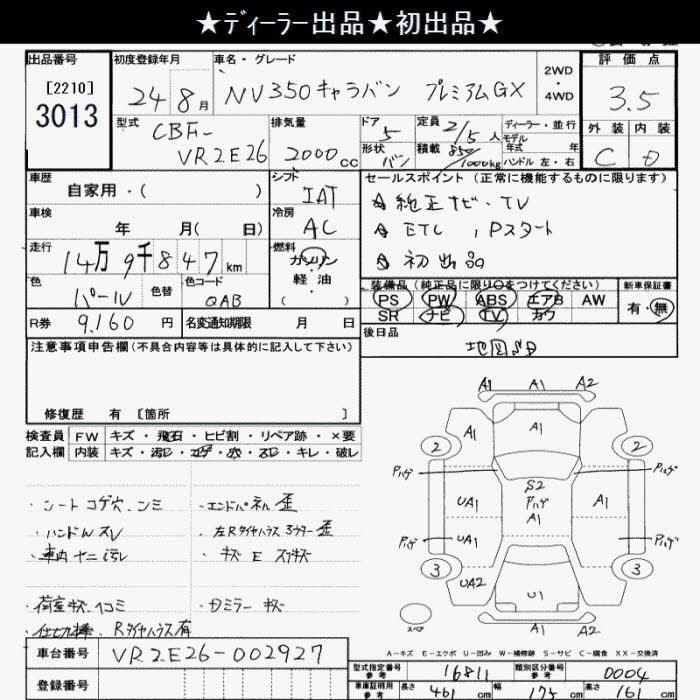 ★ディーラー出品★初出品★
出品番号
[2210]
3013
初度登録年月
24年8月
車名・グレード
NV350キャラバン プレミアムGX
2WD
・
4WD
評価点
3.5
外装 内装
C D
型式
CBF-
VR2E26
排気量
2000cc
ドア
5
形状
バン
定員
2/5人
積載
850/1000kg
ディーラー・並行
モデル
年式 年
ハンドル 左・右
車歴
自家用・( )
シフト
IAT
車検
年 月( 日)
冷房
AC
走行
14万9千847km
燃料
ガソリン
・
軽油
( )
色
パール
色替
色コード
QAB
R券
9,160円
名変通知期限 月 日
セールスポイント(正常に機能するものに限ります)
☆純正ナビ・TV
☆ETC , Pスタート
☆初出品
装備品(純正品に限り○をつけてください)
PS PW ABS エアB AW
SR ナビ TV カワ
新車保証書
有・無
後日品
地図SD
注意事項申告欄(不具合内容等は具体的に記入して下さい)
修復歴 有 〔箇所 〕
検査員
記入欄
FW キズ・飛石・ヒビ割・リペア跡・×要
内装 キズ・汚レ・コゲ・穴・スレ・キレ・破レ
・シートコゲ穴、シミ
・ハンドルスレ
・車内ヤニ汚レ
・荷室キズ、ヘコミ
・エンドパネル歪
・左Rタイヤハウスコウター歪
・キズEスリキズ
・Dミラーキズ
Rタイヤハウス有
A1 A1 A2
A1 A1
2 2
Pハゲ Pハゲ
S2
Pハゲ
A1
UA1 A1
UA1
Pハゲ Pハゲ
3 3
UA2
U1
A1 A2
スペア
A-キズ E-エクボ U-凹み W-補修跡 S-サビ C-腐食 XX-交換済
車台番号
VR2E26-002927
登録番号
型式指定番号
参考
16811
類別区分番号
参考
0004
車庫証明用
参考
長さ
461cm
幅
175cm
高さ
161cm